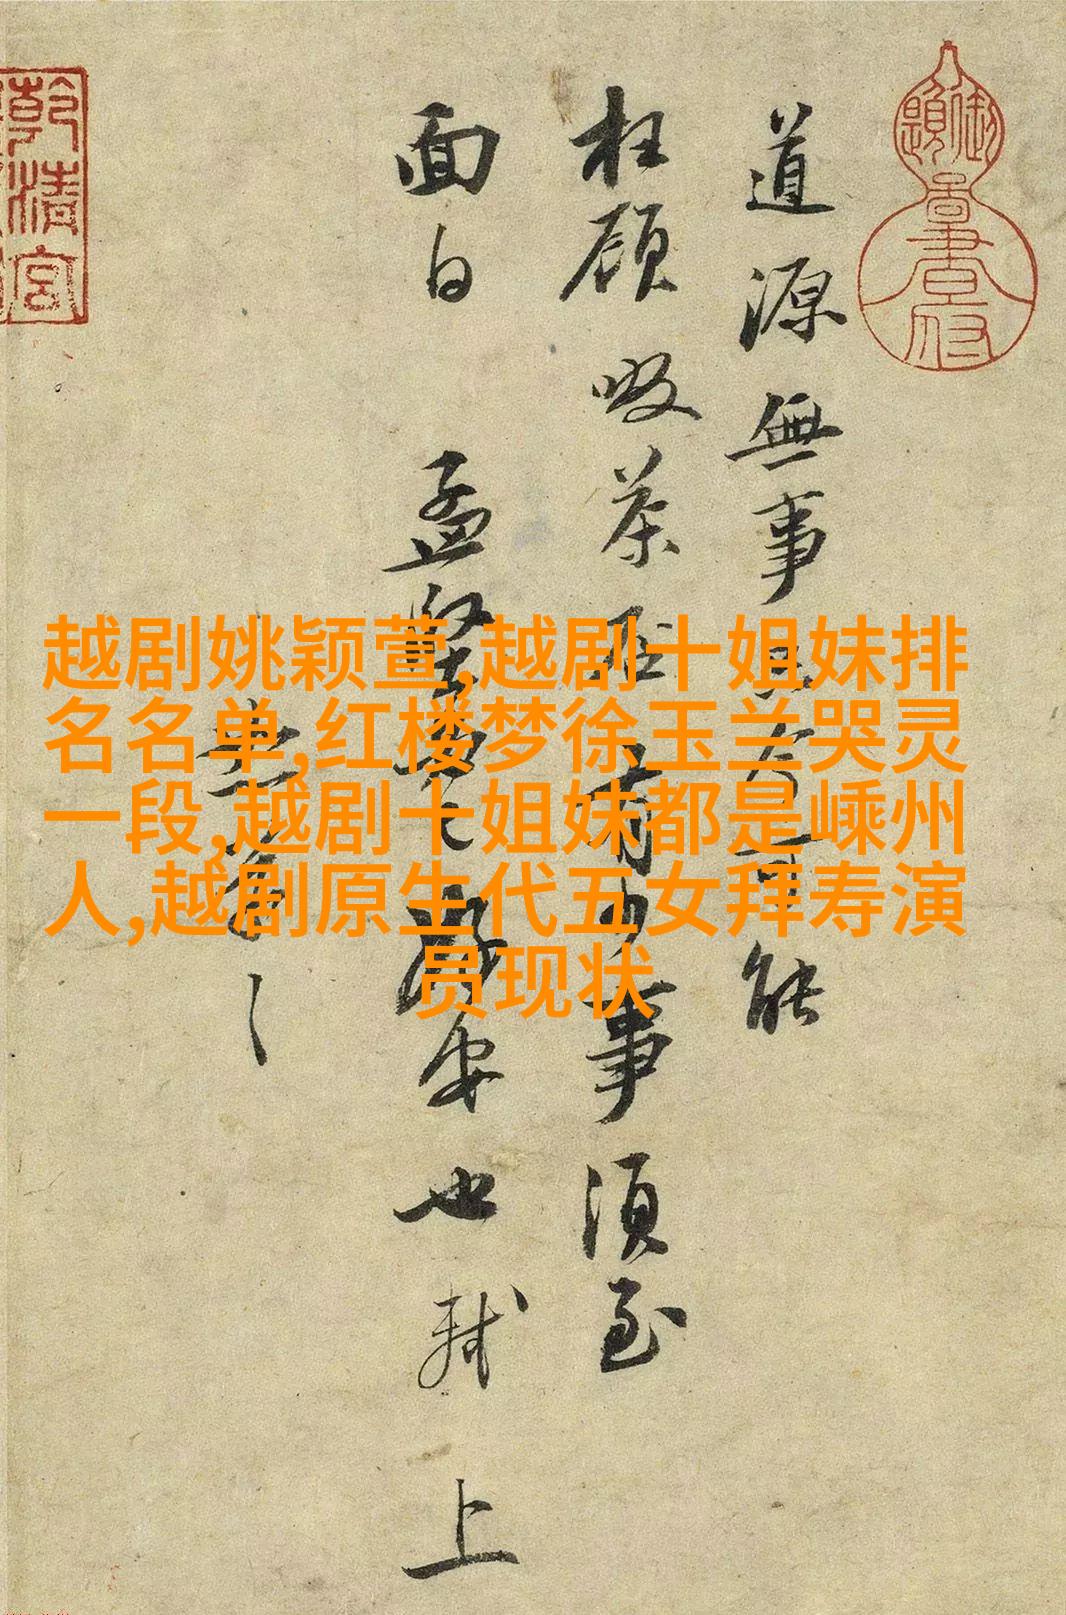 越剧姚颖萱,越剧十姐妹排
名名单,红楼梦徐玉兰哭灵
一段,越剧十姐妹都是嵊州
人,越剧原生代五女拜寿演
员现状
道源無事
能
枉顧啜茶否有少事須至
面白 孟堅
安也軾 上
乾清宮
御題
圖書府